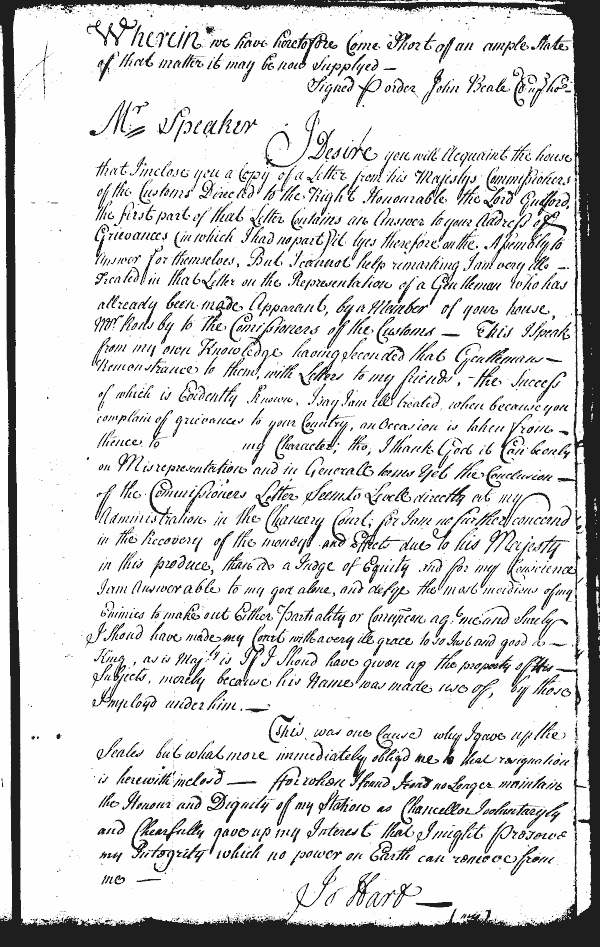 Wherein we have heretofore Come Short off an ample State
of that matter it may be now Supplyed —
Signed P order John Beale
Mr Speaker
I Desire you will Acquaint the house
that I inclose you a Copy of a Letter from his Majestys Commissioners
of the Customs Directed to the Right Honourable the Lord Guilford,
the first part of that Letter Contains an Answer to your Address of
Grievances (in which I had no part) it lyes therefore on the Assembly to
answer for themselves. But I cannot help remarking I am very ille —
Treated in that Letter on the Representation of a Gentleman who has
allready been made Apparant, by a Member of your house,
Mr Rousby to the Comissioners of the Customs — This I Speak
from my own Knowledge having Seconded that Gentlemans —
Remonstrance to them, with Letters to my friends, - the Success
of which is Evidently Known. I say I am ill treated, when because you
complain of grievances to your Country, an Occasion is taken from —
thence to my Character; tho, I thank God it Can be only
on Misrepresentation and in Generall terms Yet the Conclusion —
of the Commissioners Letter Seems to Look directly at my
Administration in the Chancery Court; for I am no further concernd
in the Recovery of the money and Effects due to his Majesty
in this produce, than as a Judge of Equity and for my Conscience
I am Answerable to my god alone, and defye the most of my
Enimies to make out Esther Partiality or Corrupcon agt me and Surely
I Shoud have made my Court with a very ill grace to so Just and good a —
King, as is Majty is If I Shoud have given up the property of his —
Subjects, merely because his Name was made use of, by those
Imployd under him. —
This, was one Cause why I gave up the
Seales but what more immediately obligd me to that resignation
is herewith inclosd — ffor when I found I coud no Longer maintain
the Honour and Dignity of my Station as Chancellor I voluntaryly
and Chearfully gave up my Interest that I might preserve
my Integrity which no power on Earth can remove from
me —
Jo Hart —